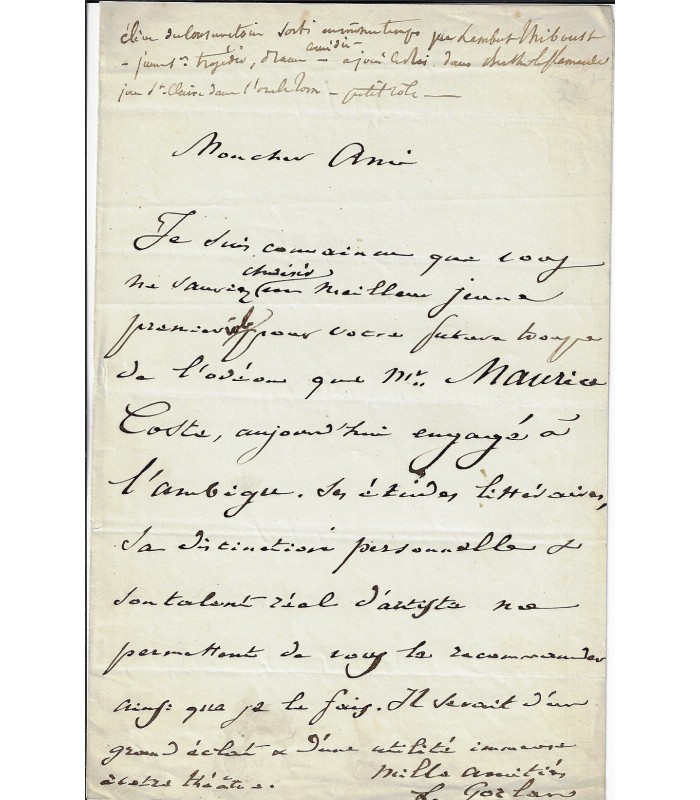 élève du Conservatoire sorti en même temps que Lambert Thiboust
- jeune 1er tragédie, drame - comédie - a joué dans
joue St. Claire dans l'oncle Tom - petit role -
Mon cher Ami
Je suis convaincu que vous
ne sauriez choisir un meilleur jeune
premier pour votre future troupe
de l'odéon que Mr. Maurice
Coste, aujourd'hui engagé à
l'ambigu. Ses études littéraires,
sa distinction personnelle &
son talent réel d'artiste me
permettent de vous le recommander
ainsi que je le fais. Il serait d'un
grand éclat & d'une utilité immense
à votre théâtre.
Mille amitiés
L. Gozlan